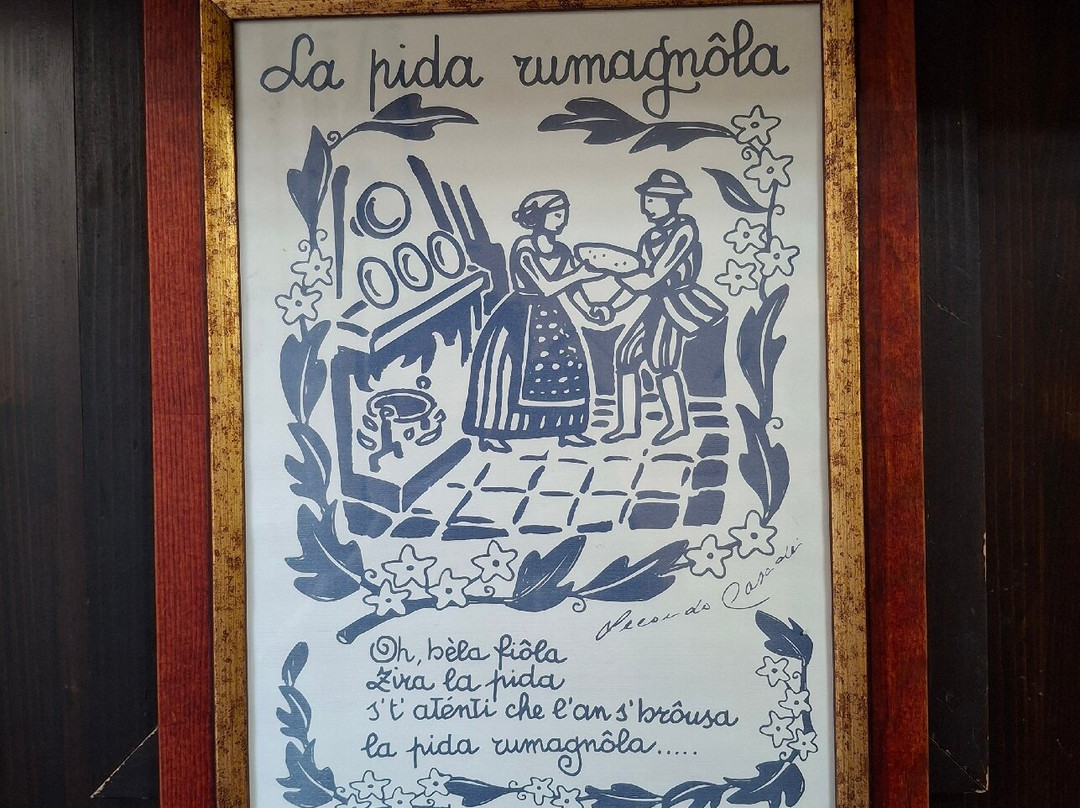 La pida rumagnôla
Secondo Casadei
Oh, bèla fiôla
Zira la pida
s't' aténti che l'an s'brôusa
la pida rumagnôla.....